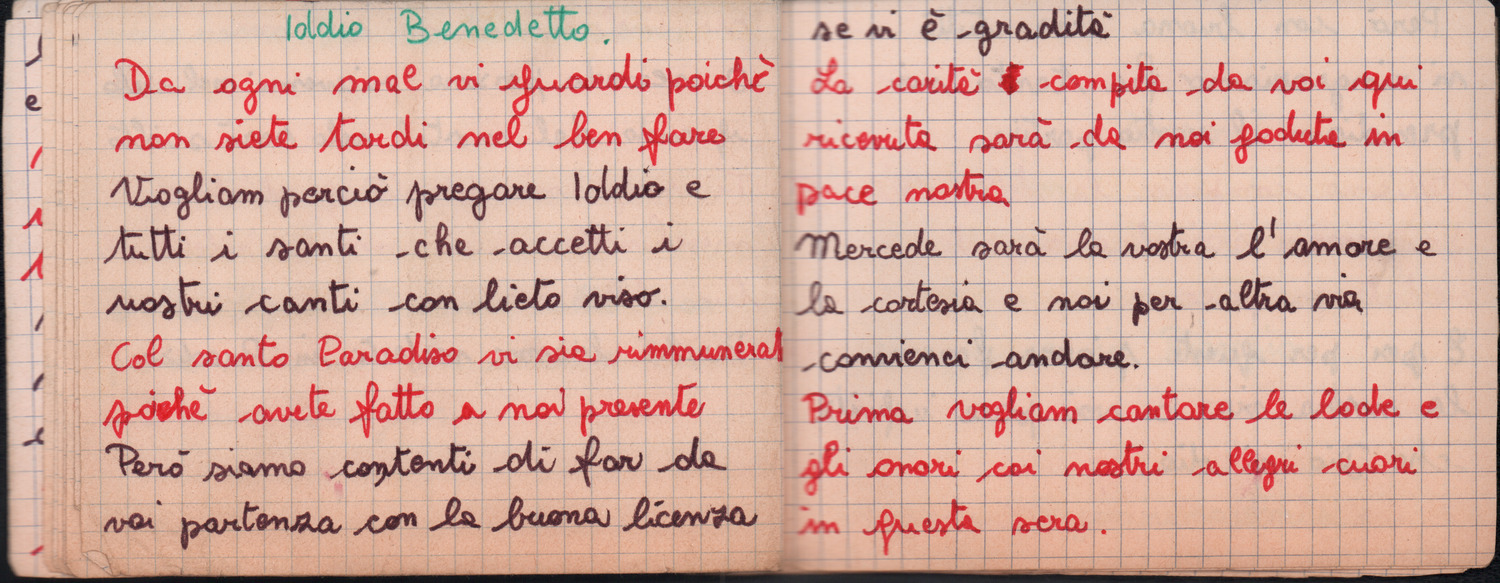 Iddio Benedetto.
Da ogni mal vi guardi poichè
non siete tardi nel ben fare
Vogliam perciò pregare Iddio e
tutti i santi che accetti i
nostri canti con lieto viso.
Col santo Paradiso vi sia rimmunerat
poichè avete fatto a noi presente
Però siamo contenti di far da
voi partenza con la buona licenza
se vi è gradità
La carità compita da voi qui
ricevuta sarà da noi goduta in
pace nostra
Mercede sarà la vostra l'amore e
la cortesia e noi per altra via
convienci andare.
Prima vogliam cantare le lode e
gli onori coi nostri allegri cuori
in questa sera.